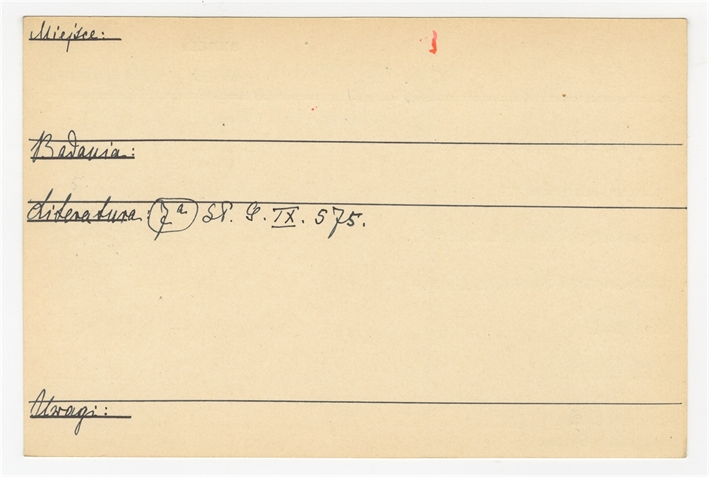 Miejsce:
Badania:
Literatura: 7a Sł. G. IX. 575.
Uwagi: